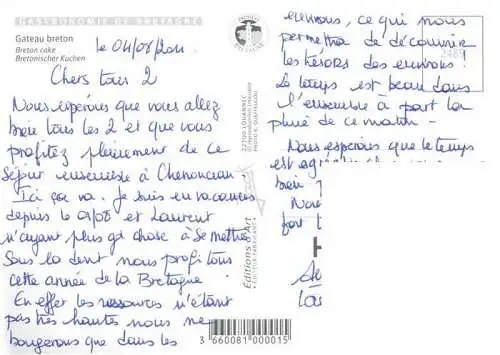 GASTRONOMIE DE BRETAGNE
Gateau breton
Breton cake
Bretonischer Kuchen
le 04/08/2011
Chers tous 2
Nous espérons que vous allez
bien tous les 2 et que vous
profitez pleinement de ce
séjour ensemble à Chenonceau.
Ici ça va. Je suis en vacances
depuis le 01/08 et Laurent
n'ayant plus gd chose à se mettre
sous la dent nous profitons
cette année de la Bretagne.
En effet les ressources n'étant
pas très hautes nous ne
bougerons que dans les
22700 LOUANNEC
Editions d'Art
3 660081 000015
environs, ce qui nous
permettra de découvrir
les trésors des environs!
Le temps est beau dans
l'ensemble à part la
pluie de ce matin -
Nous espérons que le temps
est
bien
fort